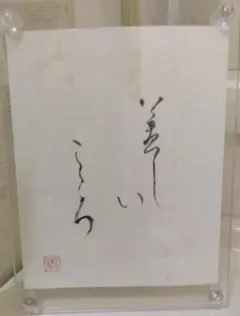 美しい
こころ